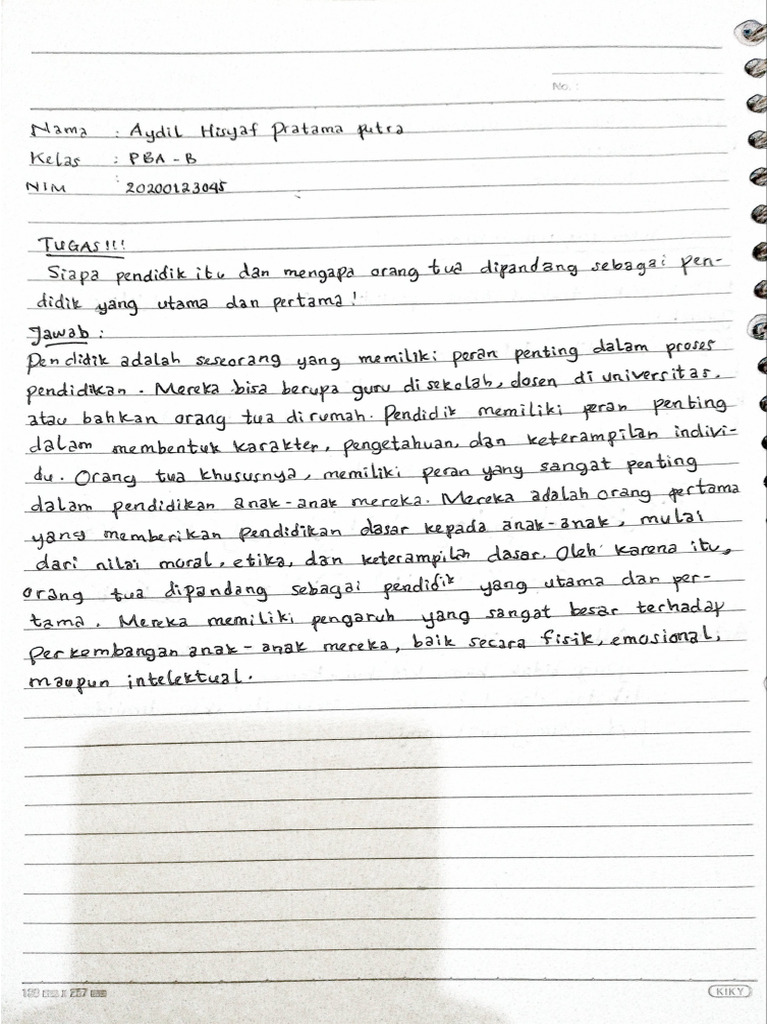 No. :
Nama : Aydil Hisyaf Pratama putra
Kelas : PBA - B
NIM : 20200123045
TUGAS!!!
Siapa pendidik itu dan mengapa orang tua dipandang sebagai pen-
didik yang utama dan pertama!
Jawab :
Pendidik adalah seseorang yang memiliki peran penting dalam proses
pendidikan. Mereka bisa berupa guru di sekolah, dosen di universitas,
atau bahkan orang tua di rumah. Pendidik memiliki peran penting
dalam membentuk karakter, pengetahuan, dan keterampilan indivi-
du. Orang tua khususnya, memiliki peran yang sangat penting
dalam pendidikan anak-anak mereka. Mereka adalah orang pertama
yang memberikan pendidikan dasar kepada anak-anak, mulai
dari nilai moral, etika, dan keterampilan dasar. Oleh karena itu,
orang tua dipandang sebagai pendidik yang utama dan per-
tama. Mereka memiliki pengaruh yang sangat besar terhadap
perkembangan anak-anak mereka, baik secara fisik, emosional,
maupun intelektual.
KIKY